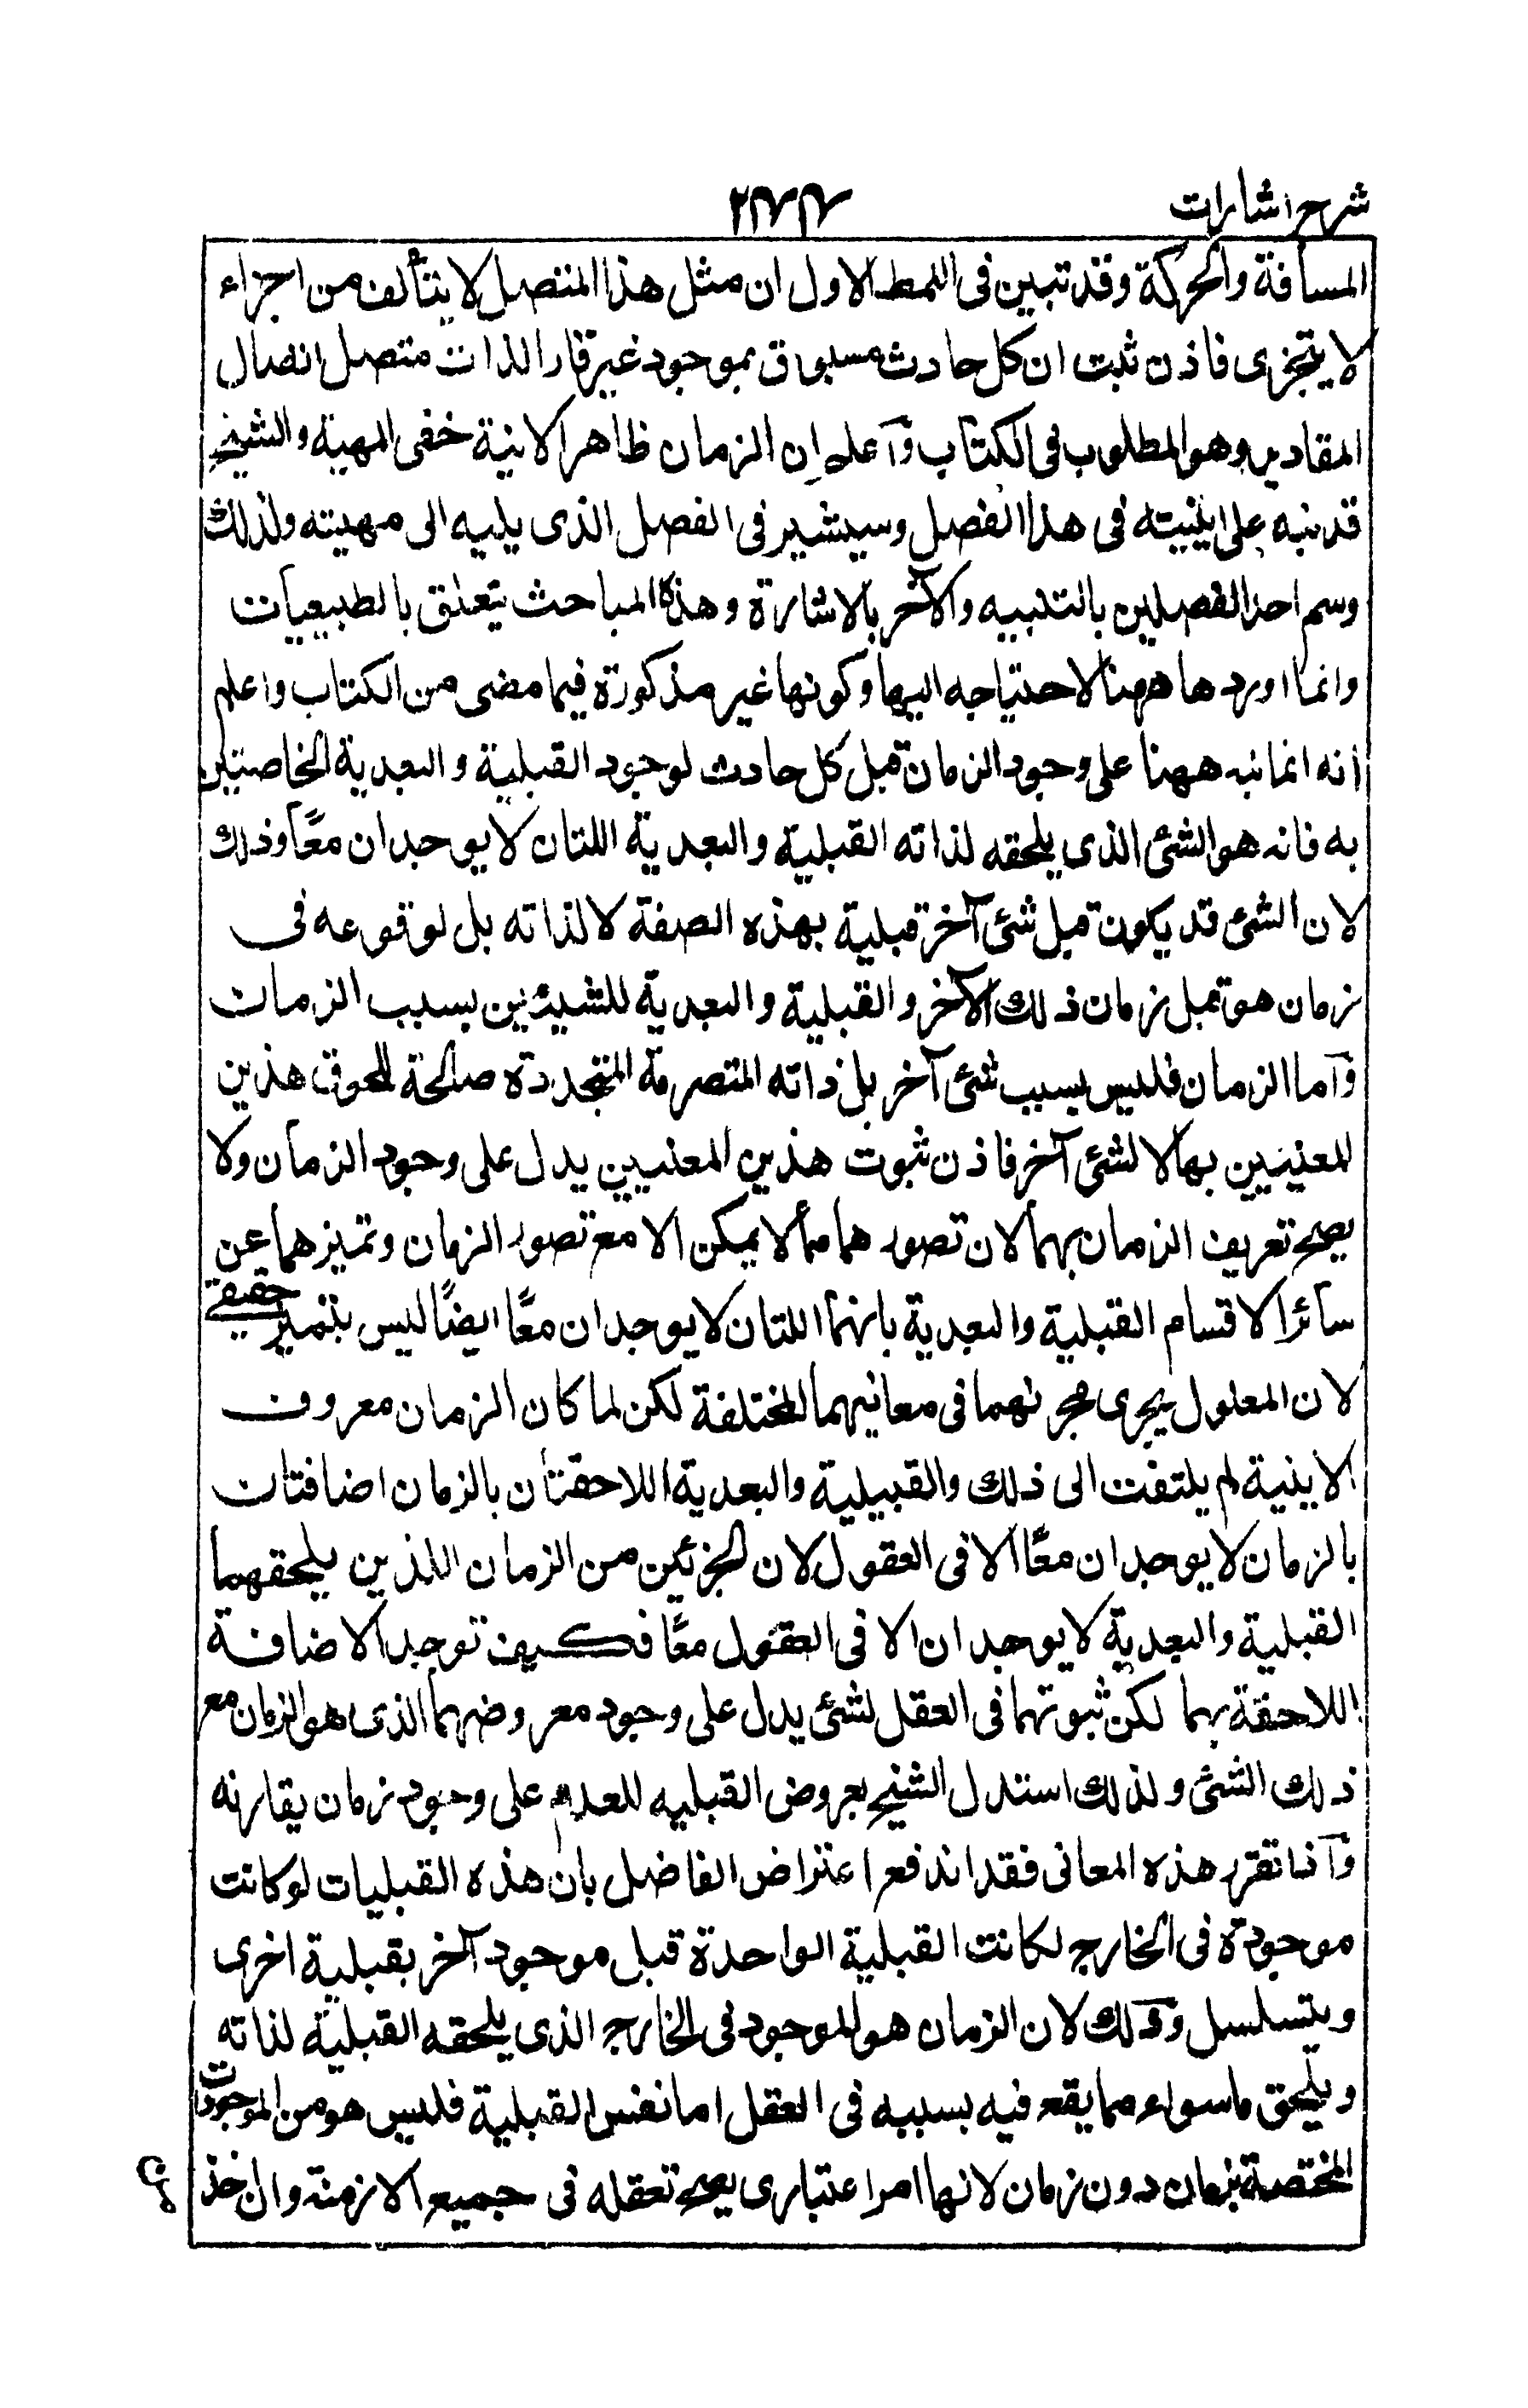 شرح اشارات
المسافة والحركة وقد تبين فى النمط الاول ان مثل هذا المتصل لا يتألف من اجزاء
لا يتجزى فاذن ثبت ان كل حادث مسبوق بموجود غير قار الذات متصل اتصال
المقادير وهو المطلوب فى الكتاب وآعلم ان الزمان ظاهر الانية خفى المهية والشيخ
قد نبه على اينيته فى هذا الفصل وسيشير فى الفصل الذى يليه الى مهيته ولذلك
وسم احد الفصلين بالتنبيه والآخر بالاشارة وهذه المباحث يتعلق بالطبيعيات
وانما اوردها ههنا لاحتياجه اليها وكونها غير مذكورة فيما مضى من الكتاب واعلم
انه انما نبه ههنا على وجود الزمان قبل كل حادث لوجود القبلية والبعدية الخاصتين
به فانه هو الشئ الذى يلحقه لذاته القبلية والبعدية اللتان لا يوجدان معًا وذلك
لان الشئ قد يكون قبل شئ آخر قبلية بهذه الصفة لا لذاته بل لوقوعه فى
زمان هو قبل زمان ذلك الآخر والقبلية والبعدية للشيئين بسبب الزمان
وآما الزمان فليس بسبب شئ آخر بل ذاته المتصرمة المتجددة صالحة للحوق هذين
المعنيين بها لا لشئ آخر فاذن ثبوت هذين المعنيين يدل على وجود الزمان ولا
يصح تعريف الزمان بهما لان تصورهما مما لا يمكن الا مع تصور الزمان وتميزهما عن
سائر الاقسام القبلية والبعدية بانهما اللتان لا يوجدان معًا ايضًا ليس بتميز حقيقے
لان المعلول يجرى مجرٮهما فى معانيهما المختلفة لكن لما كان الزمان معروف
الاينية لم يلتفت الى ذلك والقبيلية والبعدية اللاحقتان بالزمان اضافتان
بالزمان لا يوجدان معًا الا فى العقول لان الجزئين من الزمان اللذين يلحقهما
القبلية والبعدية لا يوجدان الا فى العقول معًا فكيف توجد الاضافة
اللاحقة بهما لكن ثبوتهما فى العقل لشئ يدل على وجود معروضهما الذى هو الزمان مع
ذلك الشئ ولذلك استدل الشيخ بعروض القبليه للعدم على وجود زمان يقارنه
وآذا تقرر هذه المعانى فقد اندفع اعتراض الفاضل بان هذه القبليات لو كانت
موجودة فى الخارج لكانت القبلية الواحدة قبل موجود آخر بقبلية اخرى
ويتسلسل وذلك لان الزمان هو الموجود فى الخارج الذى يلحقه القبلية لذاته
ويلحق ما سواه مما يقع فيه بسببه فى العقل اما نفس القبلية فليس هو من الموجودات
المختصة بزمان دون زمان لانها امر اعتبارى يصح تعقله فى جميع الازمنة وان اخذ